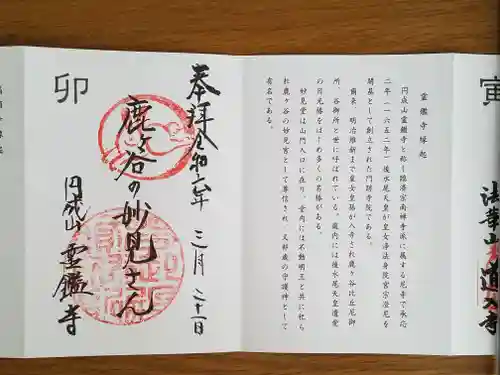 寅
法華山
霊鑑寺縁起
円成山霊鑑寺と称し臨済宗南禅寺派に属する尼寺で承応
二年(一六五二年)後水尾天皇が皇女浄法身院宮宗澄尼を
開基として創立された門跡寺院である。
爾来、明治維新まで皇女皇孫が入寺され鹿ヶ谷比丘尼御
所、谷御所と世に呼ばれている。庭内には後水尾天皇遺愛
の日光椿をはじめ多くの名椿がある。
妙見堂は山門入口に在り、堂内には不動明王と共に祀ら
れ鹿ヶ谷の妙見宮として尊信され、又卯歳の守護神として
有名である。
奉拝 令和六年 三月 二十一日
鹿ヶ谷の妙見さん
卯
円成山 霊鑑寺